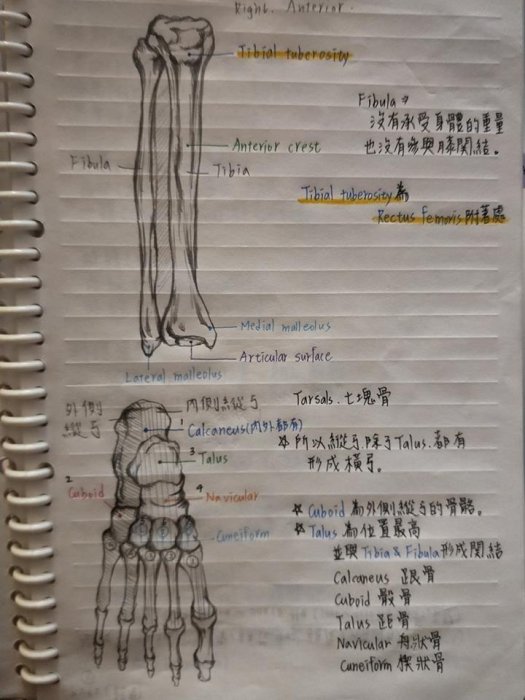 Right. Anterior.
Tibial tuberosity
Fibula →
沒有承受身體的重量
也沒有參與膝關結。
Anterior crest
Fibula
Tibia
Tibial tuberosity 為
Rectus femoris 附著處
Medial malleolus
Articular surface
Lateral malleolus
外側
縱弓
內側縱弓
Tarsals. 七塊骨
1
Calcaneus(內外都有)
☆ 所以縱弓, 除了Talus. 都有
形成橫弓。
3
Talus
2
Cuboid
4
Navicular
☆ Cuboid 為外側縱弓的骨骼。
☆ Talus 為位置最高
並與Tibia & Fibula 形成關結
Cuneiform
① ② ③
Calcaneus 跟骨
Cuboid 骰骨
Talus 距骨
Navicular 舟狀骨
Cuneiform 楔狀骨